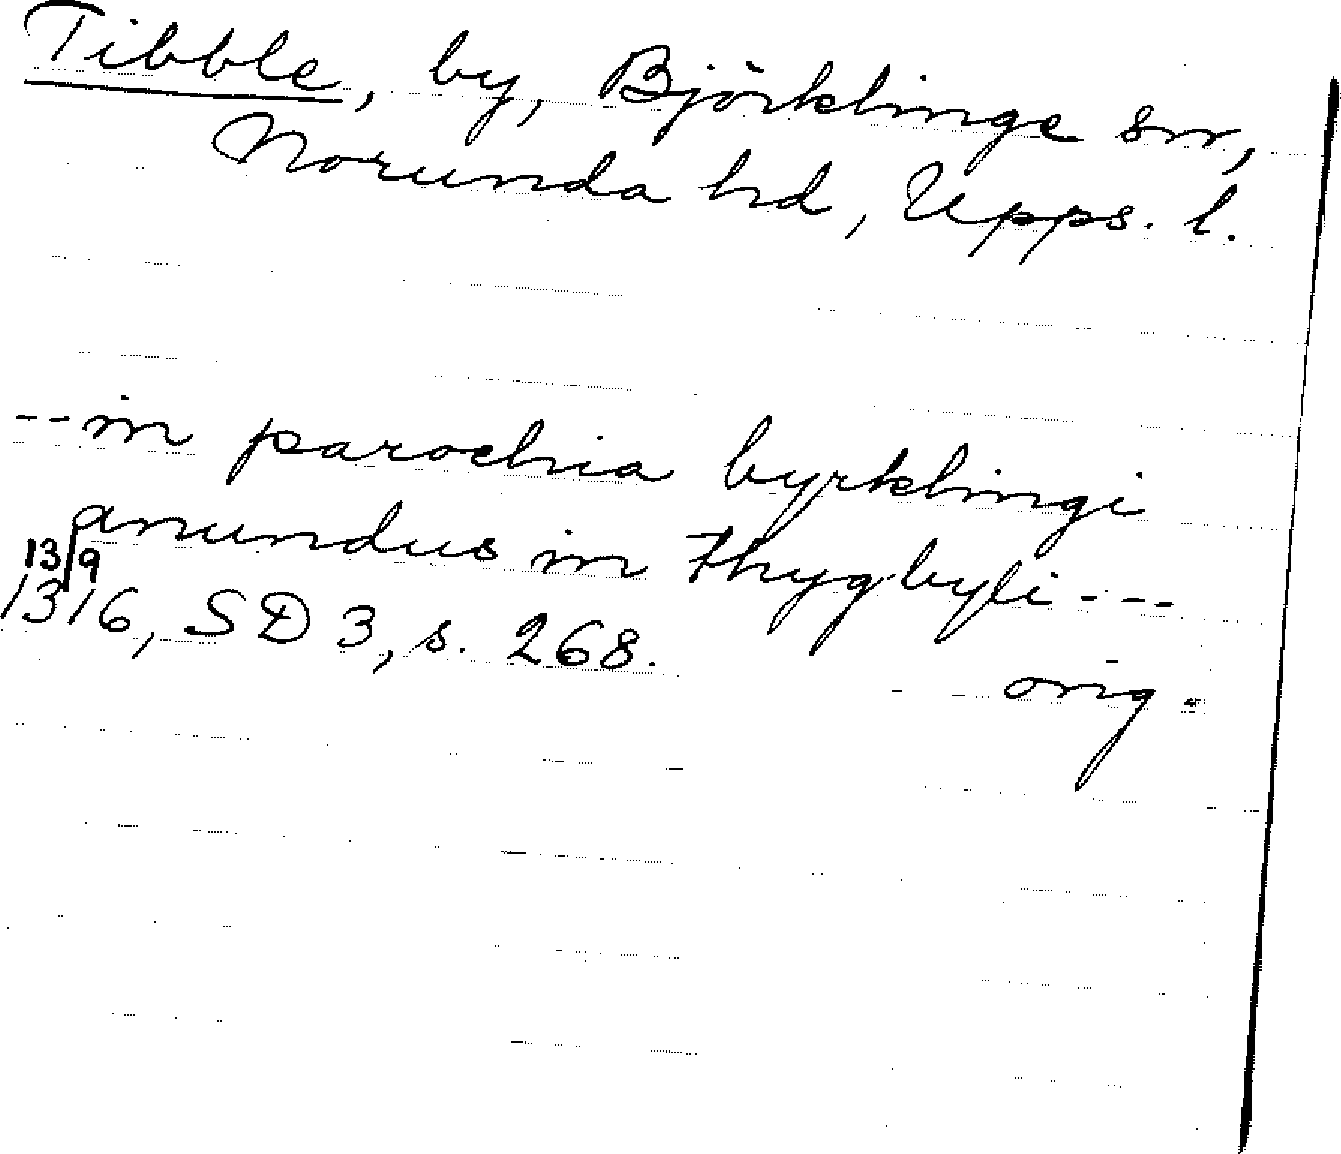 Tibble, by, Björklinge sn,
Norunda hd, Upps. l.
--in parochia byrklingi
anundus in thygbyli---
13/9
1316, SD 3, s. 268.
orig.